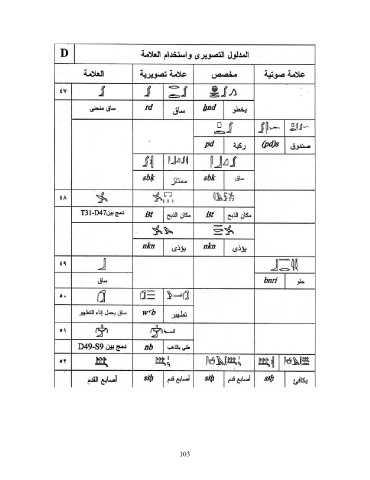 D المدلول التصويرى واستخدام العلامة
العلامة علامة تصويرية مخصص علامة صوتية
٤٧
ساق منحنى rd ساق ḫnd يخطو
pd ركبة (pd)s صندوق
sbk ممتاز sbk ساق
٤٨
دمج بين T31-D47 ist مكان الذبح ist مكان الذبح
nkn يؤذى nkn يؤذى
٤٩
ساق bnri حلو
٥٠
ساق يحمل إناء للتطهير wʿb تطهير
٥١
دمج بين D49-S9 nb طلى بالذهب
٥٢
أصابع القدم sꜣḥ أصابع قدم sꜣḥ أصابع قدم sꜣḥ يكافئ
103